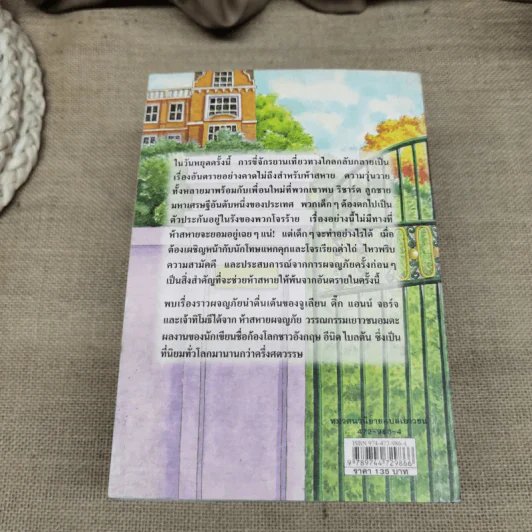 ในวันหยุดครั้งนี้ การขี่จักรยานเที่ยวทางไกลกลับกลายเป็น
เรื่องอันตรายอย่างคาดไม่ถึงสำหรับห้าสหาย ความวุ่นวาย
ทั้งหลายมาพร้อมกับเพื่อนใหม่ที่พวกเขาพบ ริชาร์ด ลูกชาย
มหาเศรษฐีอันดับหนึ่งของประเทศ พวกเด็กๆ ต้องตกไปเป็น
ตัวประกันอยู่ในรังของพวกโจรร้าย เรื่องอย่างนี้ไม่มีทางที่
ห้าสหายจะยอมอยู่เฉยๆ แน่! แต่เด็กๆ จะทำอย่างไรได้ เมื่อ
ต้องเผชิญหน้ากับนักโทษแหกคุกและโจรเรียกค่าไถ่ ไหวพริบ
ความสามัคคี และประสบการณ์จากการผจญภัยครั้งก่อนๆ
เป็นสิ่งสำคัญที่จะช่วยห้าสหายให้พ้นจากอันตรายในครั้งนี้
พบเรื่องราวผจญภัยน่าตื่นเต้นของจูเลียน ดิ๊ก แอนน์ จอร์จ
และเจ้าทิโมธีได้จาก ห้าสหายผจญภัย วรรณกรรมเยาวชนอมตะ
ผลงานของนักเขียนชื่อก้องโลกชาวอังกฤษ อีนิด ไบลตัน ซึ่งเป็น
ที่นิยมทั่วโลกมานานกว่าครึ่งศตวรรษ
ISBN 974-472-988-4
9 789744 729886
ราคา 135 บาท